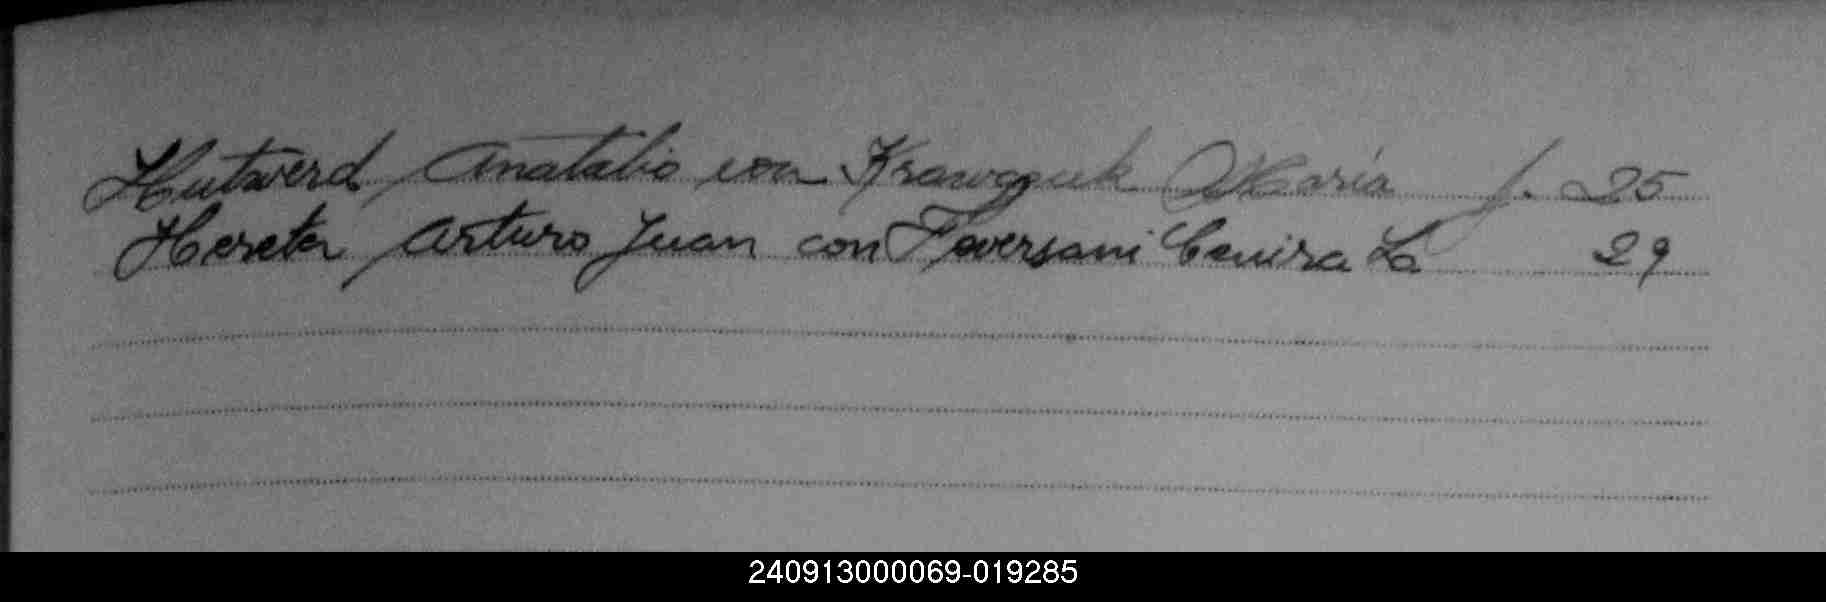 Hutwerd Anatalio con Krawczuk María f. 25
Hereter Arturo Juan con Faversani Cenira La 29
240913000069-019285